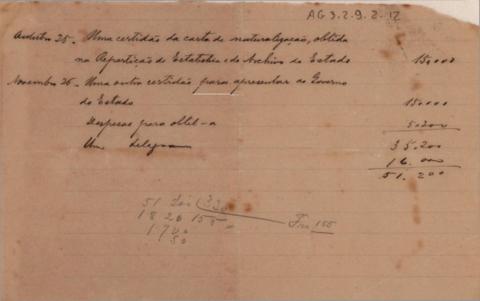 AG 3.2.9.2-12
Outubro 25. Uma certidão da carta de naturalização, obtida
na Repartição de Estatistica e do Archivo do Estado 15,000
Novembro 26. Uma outra certidão para apresentar ao Governo
do Estado 15.000
Despesas para obtel-a 5.200
Um telegramma 35.200
16.000
51.200
51
1820 155 Frs 155
1700
50